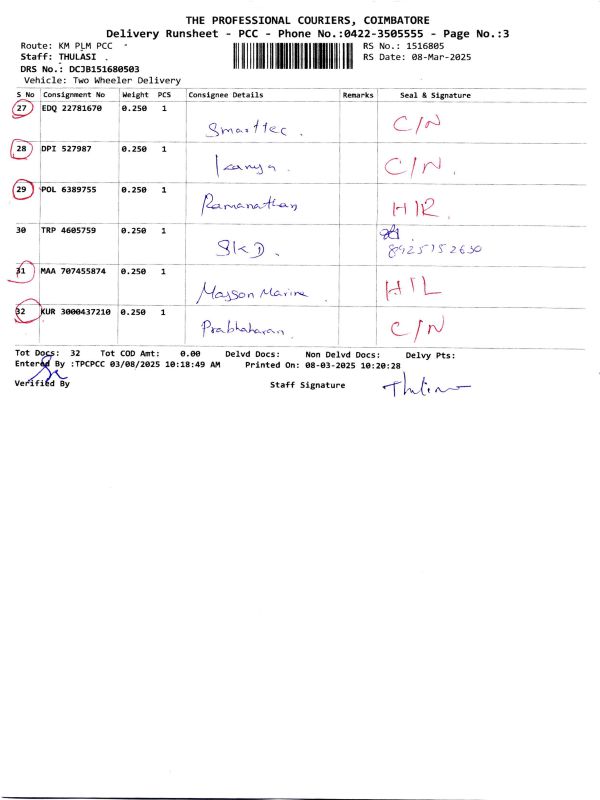 THE PROFESSIONAL COURIERS, COIMBATORE
Delivery Runsheet - PCC - Phone No.:0422-3505555 - Page No.:3
Route: KM PLM PCC
RS No.: 1516805
Staff: THULASI .
RS Date: 08-Mar-2025
DRS No.: DCJB151680503
Vehicle: Two Wheeler Delivery
S No Consignment No Weight PCS Consignee Details Remarks Seal & Signature
27 EDQ 22781670 0.250 1
Smarttec . C/N
28 DPI 527987 0.250 1
Kanya . C/N.
29 POL 6389755 0.250 1
Ramanathan HIR.
30 TRP 4605759 0.250 1
SKD . 8925152630
31 MAA 707455874 0.250 1
Masson Marine HIL
32 KUR 3000437210 0.250 1
Prabhaharan. C/N
Tot Docs: 32 Tot COD Amt: 0.00 Delvd Docs: Non Delvd Docs: Delvy Pts:
Entered By :TPCPCC 03/08/2025 10:18:49 AM Printed On: 08-03-2025 10:20:28
Verified By Staff Signature